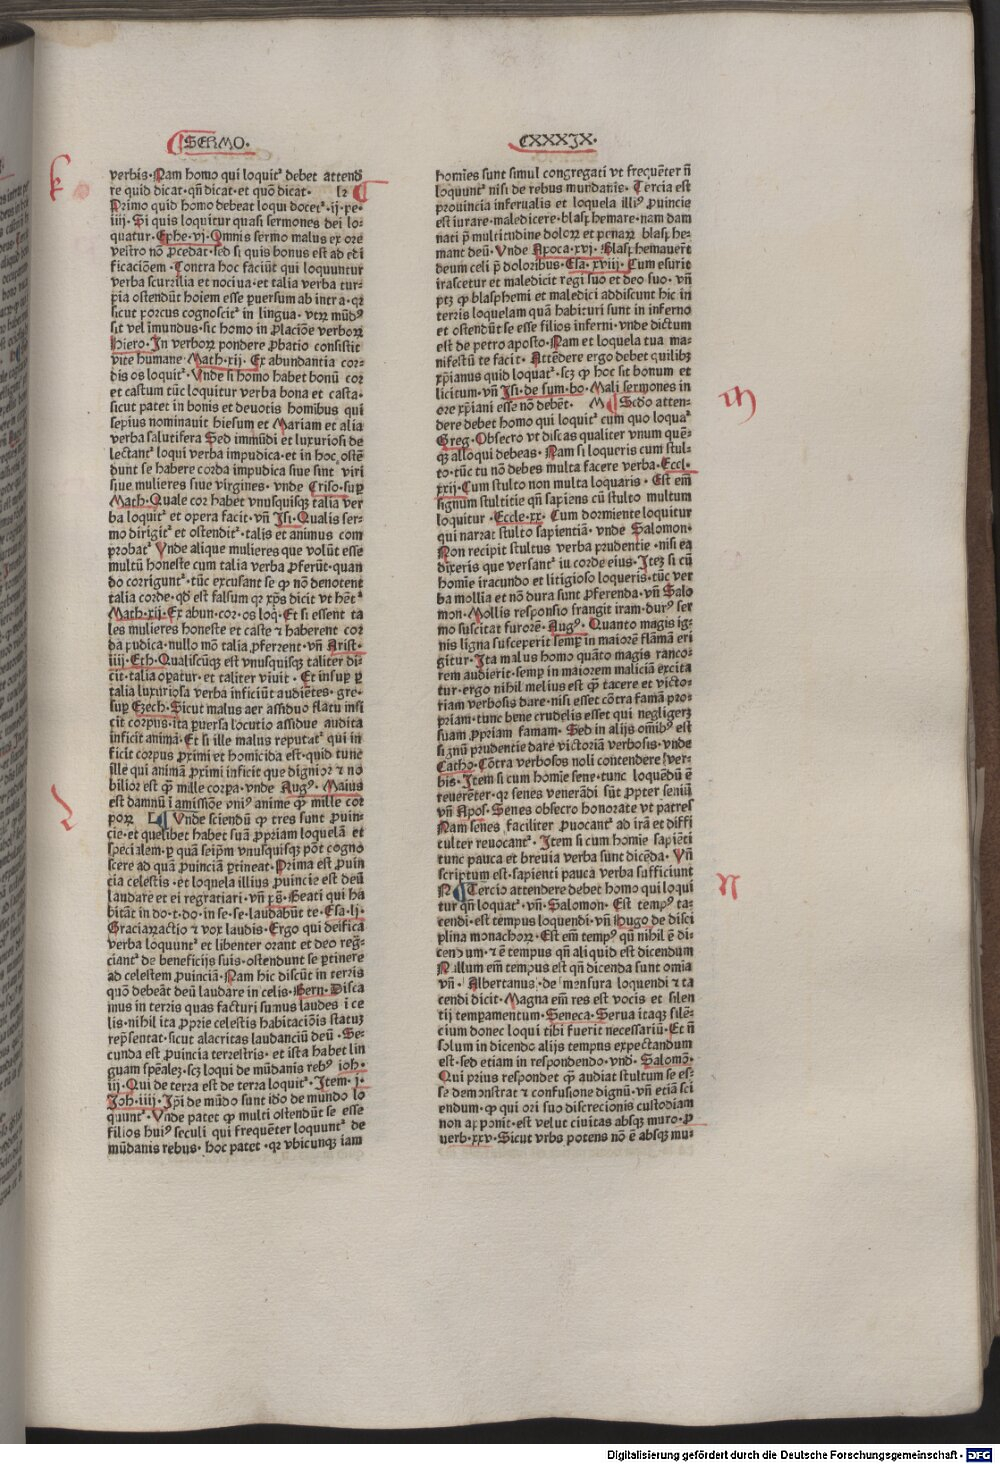 SERMO.
CXXXIX.
k
verbis. Nam homo qui loquitᷣ debet attend
re quid dicat. qñ dicat. et quō dicat. k
Primo quid homo debeat loqui docetᷣ. ij. pe.
iiij. Si quis loquitur quasi sermones dei lo⸗
quatur. Ephe. vj. Omnis sermo malus ex ore
vestro nō ꝓcedat. sed si quis bonus est ad edi
ficaciōem. Contra hoc faciūt qui loquuntur
verba scurrilia et nociua. et talia verba tur⸗
pia ostendūt hoiem esse ꝑuersum ab intra. qꝛ
sicut porcus cognoscitᷣ in lingua. vtꝝ mūdꝰ
sit vel īmundus. sic homo in ꝓlaciōe verboꝝ
Hiero. In verboꝝ pondere ꝓbatio consistit
vite humane. Math. xij. Ex abundantia cor⸗
dis os loquitᷣ. Vnde si homo habet bonū cor
et castum tūc loquitur verba bona et casta.
sicut patet in bonis et deuotis homībus qui
sepius nominauit hiesum et Mariam et alia
verba salutifera Sed immūdi et luxuriosi de
lectantᷣ loqui verba impudica. et in hoc ostē
dunt se habere corda impudica siue sint viri
siue mulieres siue virgines. vnde Criso. suꝑ
Math. Quale cor habet vnusquisqꝫ talia ver
ba loquitᷣ et opera facit. vñ Isi. Qualis ser⸗
mo dirigitᷣ et ostenditᷣ. talis et animus com
probatᷣ Vnde alique mulieres que volūt esse
multū honeste cum talia verba ꝓferūt. quan
do corriguntᷣ. tūc excusant se ꝙ nō denotent
talia corde. qd̄ est falsum qꝛ xp̄s dicit vt hētᷣ
Math. xij. Ex abun. cor. os loq̄. Et si essent ta
les mulieres honeste et caste ⁊ haberent cor
da pudica. nullo mō talia ꝓferrent. vñ Arist.
iiij. Eth. Qualiscūqꝫ est vnusquisqꝫ taliter di⸗
cit. talia oꝑatur. et taliter viuit. Et insuꝑ ꝑ
talia luxuriosa verba inficiūt audiētes. gre⸗
suꝑ Ezech. Sicut malus aer assiduo flatu infi
cit corpus. ita ꝑuersa locutio assidue audita
inficit animā. Et si ille malus reputatᷣ qui in
ficit corpus ꝓximi et homicida est. quid tunc
ille qui animā ꝓximi inficit que dignior ⁊ no
bilior est ꝙ̄ mille corpa. vnde Augꝰ. Maius
est damnū ī amissiōe vniꝰ anime ꝙ̄ mille cor
poꝝ L Vnde sciendū ꝙ tres sunt ꝓuin⸗
cie. et quelibet habet suā ꝓpriam loquelā et
specialem. ꝑ quā seip̄m vnusquisqꝫ pōt cogno
scere ad quā ꝓuinciā ꝑtineat. Prima est ꝓuin
cia celestis. et loquela illius ꝓuincie est deū
laudare et ei regratiari. vñ pꝰs. Beati qui ha
bitāt in do. t. do. in se. se. laudabūt te. Esa. lj.
Graciaꝝactio ⁊ vox laudis. Ergo qui deifica
verba loquunᷣt et libenter orant et deo regr̄⸗
ciantᷣ de beneficijs suis. ostendunt se ꝑtinere
ad celestem ꝓuinciā. Nam hic discūt in terris
quō debeāt deū laudare in celis. Bern. Disca
mus in terris quas facturi sumus laudes ī ce
lis. nihil ita ꝓprie celestis habitaciōis statuꝫ
rep̄sentat. sicut alacritas laudanciū deū. Se⸗
cunda est ꝓuincia terrestris. et ista habet lin
guam sp̄ealeꝫ. scꝫ loqui de mūdanis rebꝰ. ioh.
iij. Qui de terra est de terra loquitᷣ. Item. j.
Joh. iiij. Ip̄i de mūdo sunt ido de mundo lo
quuntᷣ. Vnde patet ꝙ multi ostendūt se esse
filios huiꝰ seculi qui frequēter loquuntᷣ de
mūdanis rebus. hoc patet. qꝛ vbicunqꝫ iam
L
homīes sunt simul congregati vt frequēter ñ
loquuntᷣ nisi de rebus mundanis. Tercia est
prouincia infernalis et loquela illiꝰ ꝓuincie
est iurare. maledicere. blasphemare. nam dam
nati ꝑ multitudine doloꝝ et penaꝝ blasphe⸗
mant deū. Vnde Apoca. xvj. Blasphemauerᷣt
deum celi ꝑ doloribus. Esa. xviij. Cum esurit
irascetur et maledicit regi suo et deo suo. vñ
ptꝫ ꝙ blasphemi et maledici addiscunt hic in
terris loquelam quā habituri sunt in inferno
et ostendūt se esse filios inferni. vnde dictum
est de petro aposto. Nam et loquela tua ma⸗
nifestū te facit. Attēdere ergo debet quilibꝫ
xp̄ianus quid loquatᷣ. scꝫ ꝙ hoc sit bonum et
licitum. vñ Isi. de sum. bo. Mali sermones in
ore xp̄iani esse nō debēt. M Scdo atten⸗
dere debet homo qui loquitᷣ cum quo loquaᷣ
Greg. Obsecro vt discas qualiter vnum quē⸗
qꝫ alloqui debeas. Nam si loqueris cum stul⸗
to. tūc tu nō debes multa facere verba. Eccl.
xxij. Cum stulto non multa loquaris. Est em̄
signum stultitie qñ sapiens cū stulto multum
loquitur. Eccle. xx. Cum dormiente loquitur
qui narrat stulto sapientiā. vnde Salomon.
Non recipit stultus verba prudentie. nisi ea
dixeris que versantᷣ iu corde eius. Iteꝫ si cū
homīe iracundo et litigioso loqueris. tūc ver
ba mollia et nō dura sunt ꝓferenda. vñ Salo
mon. Mollis responsio frangit iram. durꝰ ser
mo suscitat furorē. Augꝰ. Quanto magis ig⸗
nis ligna susceperit semꝑ in maiorē flāmā eri
gitur. Ita malus homo quāto magis ranco⸗
rem audierit. semꝑ in maiorem maliciā excita
tur. ergo nihil melius est ꝙ̄ tacere et victo⸗
riam verbosis dare. nisi esset cōtra famā pro⸗
priam. tunc bene crudelis esset qui negligeret
suam ꝓpriam famam. Sed in alijs om̄ibꝰ est
signū prudentie dare victoriā verbosis. vnde
Catho. Cōtra verbosos noli contendere ver⸗
bis. Item si cum homīe sene. tunc loquēdū ē
reuerēter. qꝛ senes venerādi sūt ꝓpter seniū
vñ Apos. Senes obsecro honorate vt patres
Nam senes faciliter ꝓuocantᷣ ad irā et diffi
culter reuocantᷣ. Item si cum homīe sapiēti
tunc pauca et breuia verba sunt dicēda. Vñ
scriptum est. sapienti pauca verba sufficiunt
N Tercio attendere debet homo qui loqui
tur qñ loquatᷣ. vñ. Salomon. Est tempꝰ ta⸗
cendi. est tempus loquendi. vñ Hugo de disci
plina monachoꝝ. Est em̄ tempꝰ qū nihil ē di⸗
cendum. ⁊ ē tempus qñ aliquid est dicendum
Nullum em̄ tempus est qñ dicenda sunt omīa
vñ. Albertanus. de mensura loquendi ⁊ ta
cendi dicit. Magna em̄ res est vocis et silen
tij temperamentum. Seneca. Serua itaqꝫ silē⸗
cium donec loqui tibi fuerit necessariū. Et ñ
solum in dicendo alijs tempus expectandum
est. sed etiam in respondendo. vnd̄. Salomō.
Qui prius respondet ꝙ̄ audiat stultum se es⸗
se demonstrat ⁊ confusione dignū. vñ etiā sci
endum. ꝙ qui ori suo discrecionis custodiam
non apponit. est velut ciuitas absqꝫ muro. ꝓ
uerb. xxv. Sicut vrbs potens nō ē absqꝫ mu⸗
M
N
Digitalisierung gefördert durch die Deutsche Forschungsgemeinschaft - DFG